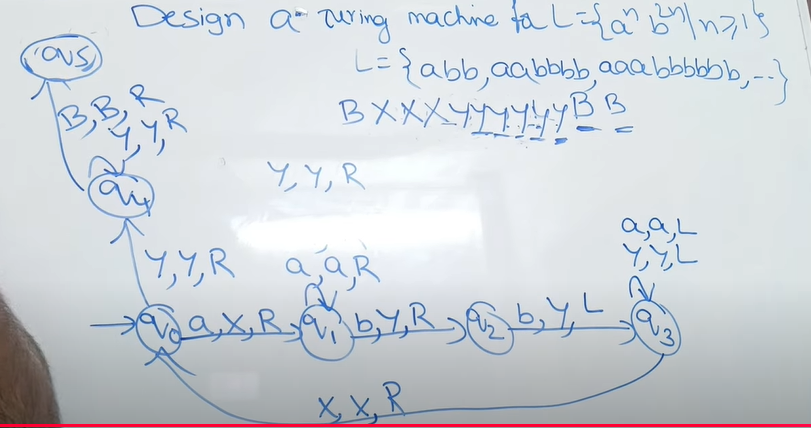 Design a turing machine for L={aⁿ b²ⁿ | n≥1}
L={abb, aabbbb, aaabbbbbb, ...}
B X X X Y Y Y Y Y Y B B
qv5
B, B, R
Y, Y, R
q4
Y, Y, R
Y, Y, R
a, a, R
a, a, L
Y, Y, L
q0 a, X, R q1 b, Y, R q2 b, Y, L q3
X, X, R